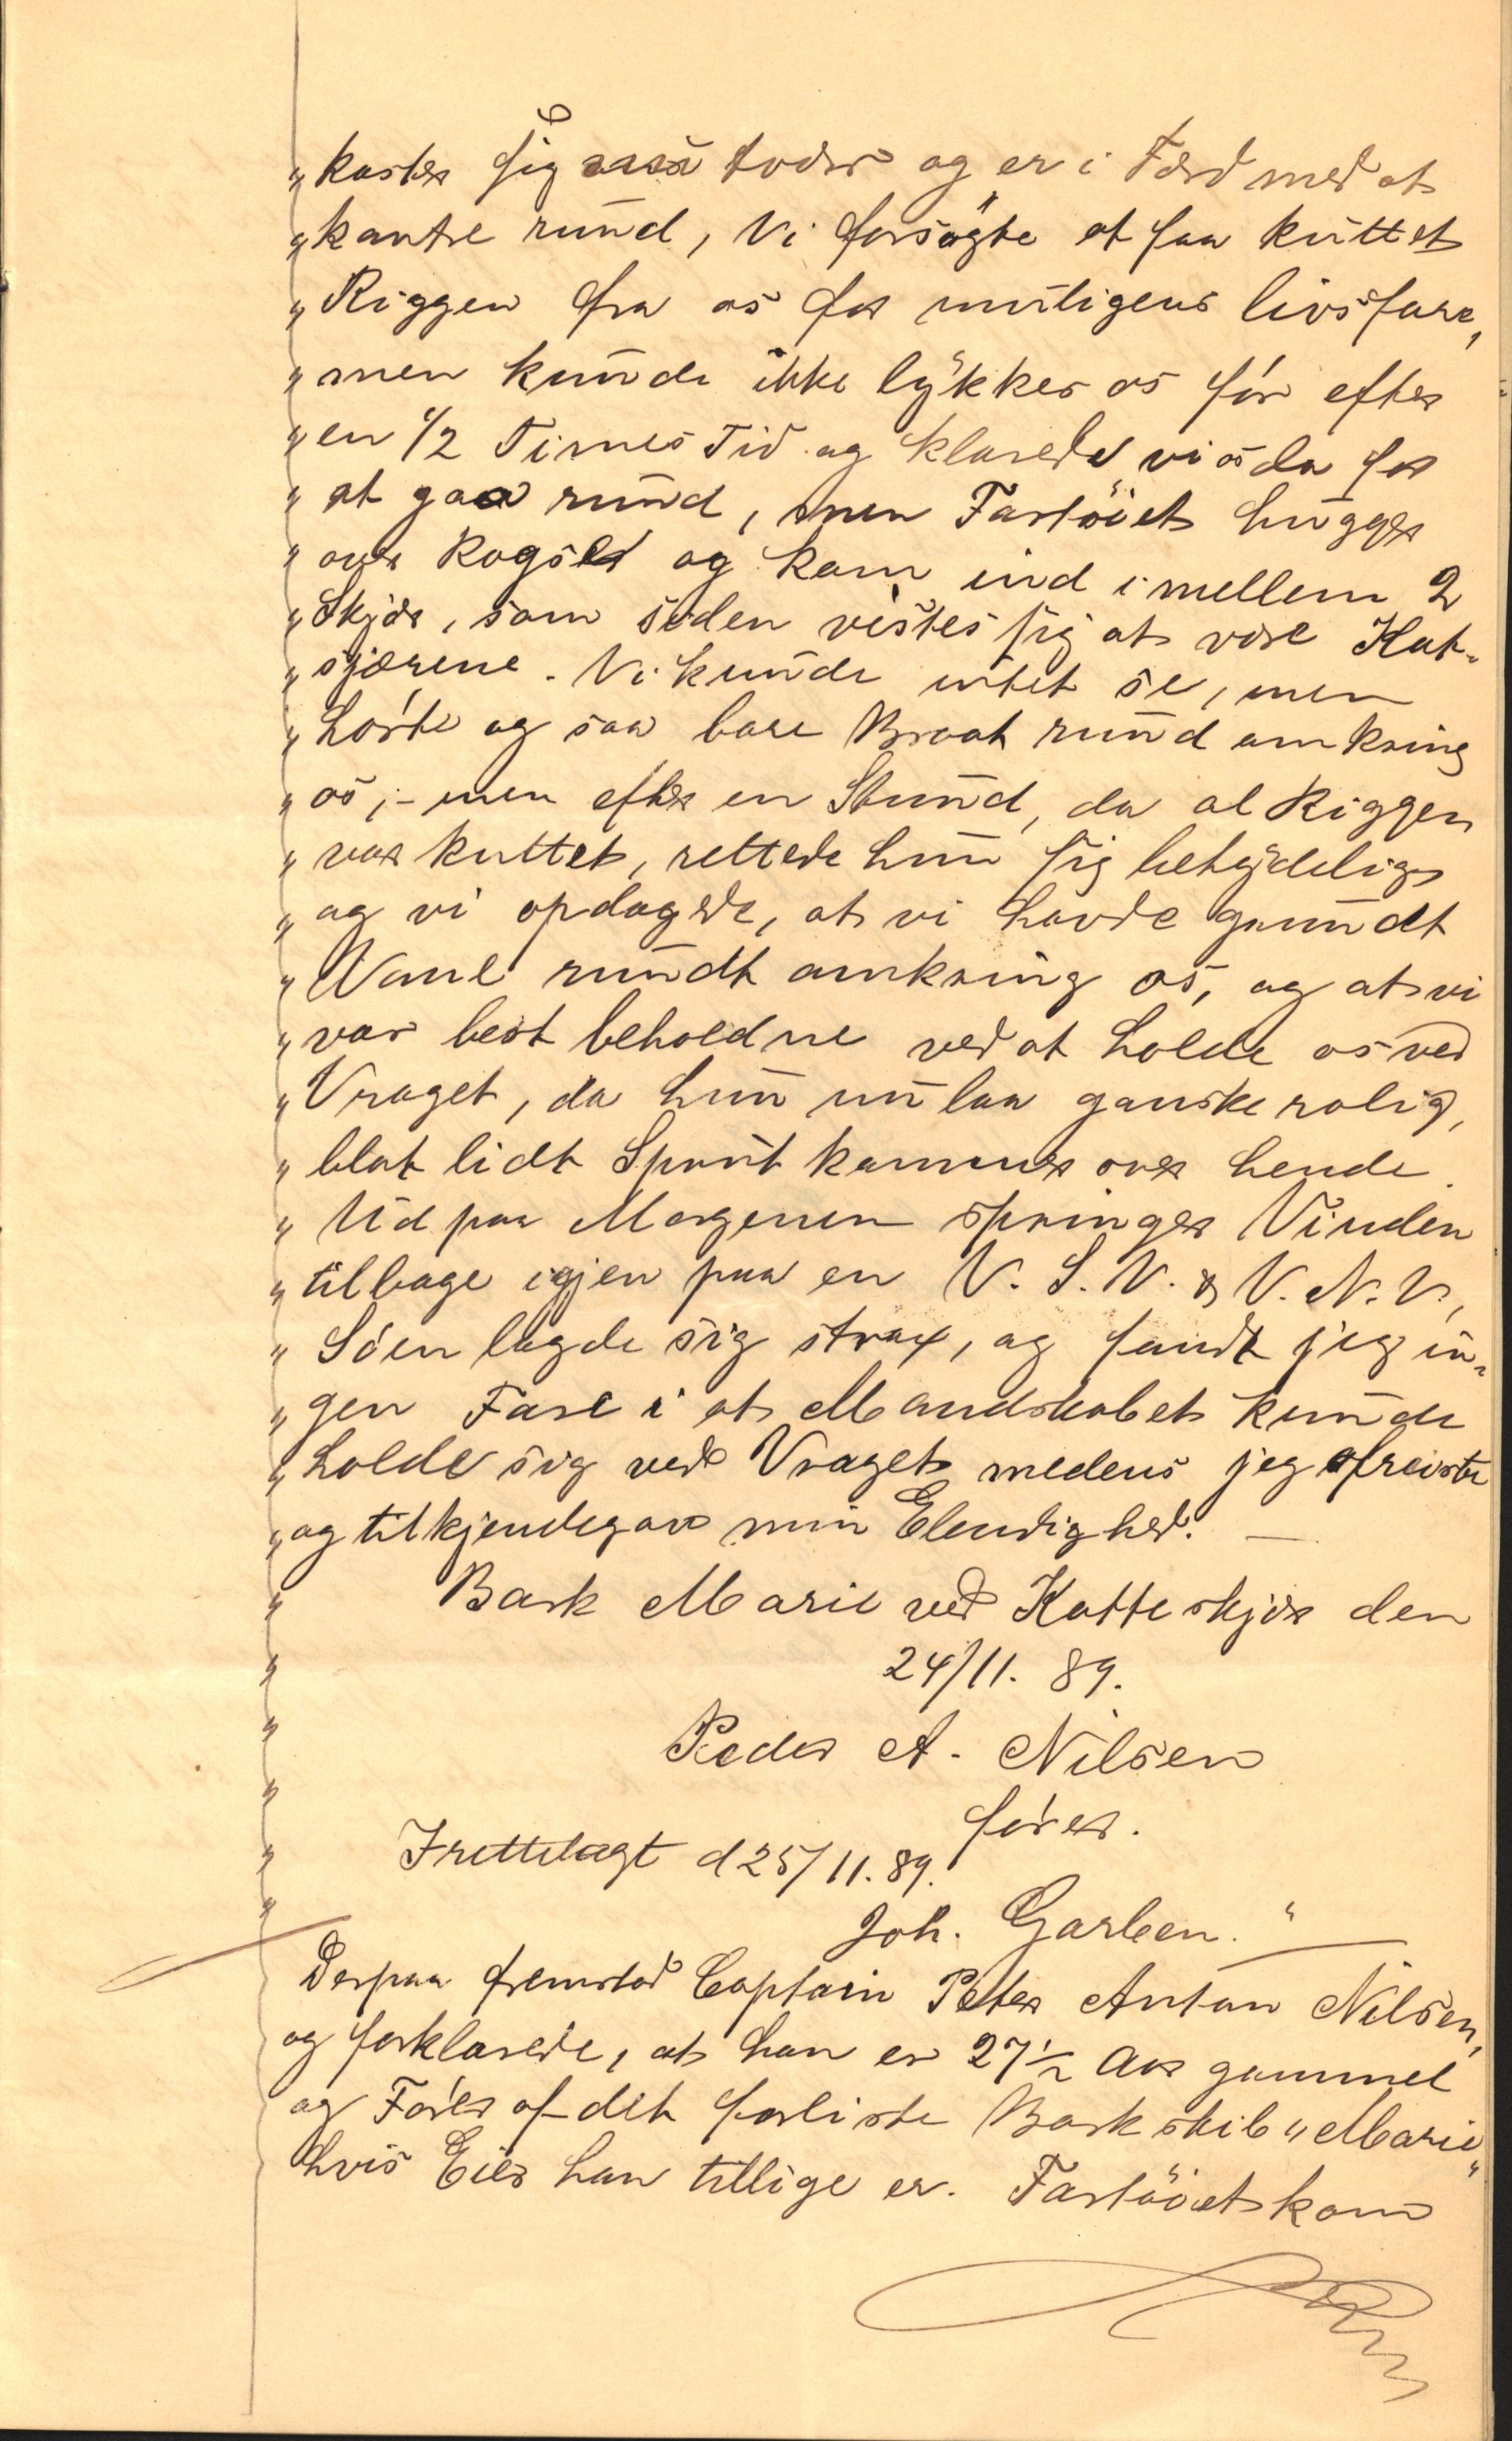 „ kaster sig over og er i Færd med at
„ kantre rund, Vi forsøgte at faa kuttet
„ Riggen fra os for muligens livsfare,
„ men kunde ikke lykkes os før efter
„ en 1/2 Times Tid og klarede vi os da for
„ at gaa rund, men Fartöiet hugger
„ over og kom ind imellem 2
„ Skjær, som siden vistes sig at være Kat-
„ sjærene. Vi kunde intet se, men
„ hørte og saa bare Braat rund omkring
„ os,- men efter en Stund, da al Riggen
„ var kuttet, rettede hun sig betydelig
„ og vi opdagede, at vi havde grundt
„ Vand rundt omkring os, og at vi
„ var best beholdne ved at holde os ved
„ Vraget, da hun nu laa ganske rolig,
„ blot lidt Sprut kommer over hende.
„ Ud paa Morgenen springer Vinden
„ tilbage igjen paa en V. S. V. & V. N. V,
„ Søen lagde sig strax, og fandt jeg in-
„ gen Fare i at Mandskabet kunde
„ holde sig ved Vraget medens jeg afreiste
„ og tilkjendegav min Elendighed. —
„ Bark Marie ved Katteskjær den
„ 24/11. 89.
„ Peder A. Nilsen
„ fører.
„ Irettelagt d 25/11. 89.
„ Joh. Garben. "
Derpaa fremstod Captain Peter Anton Nilsen,
og forklarede, at han er 27 1/2 Aar gammel
og Fører af det forliste Barkskib „Marie"
hvis Eier han tillige er. Fartöiet kom